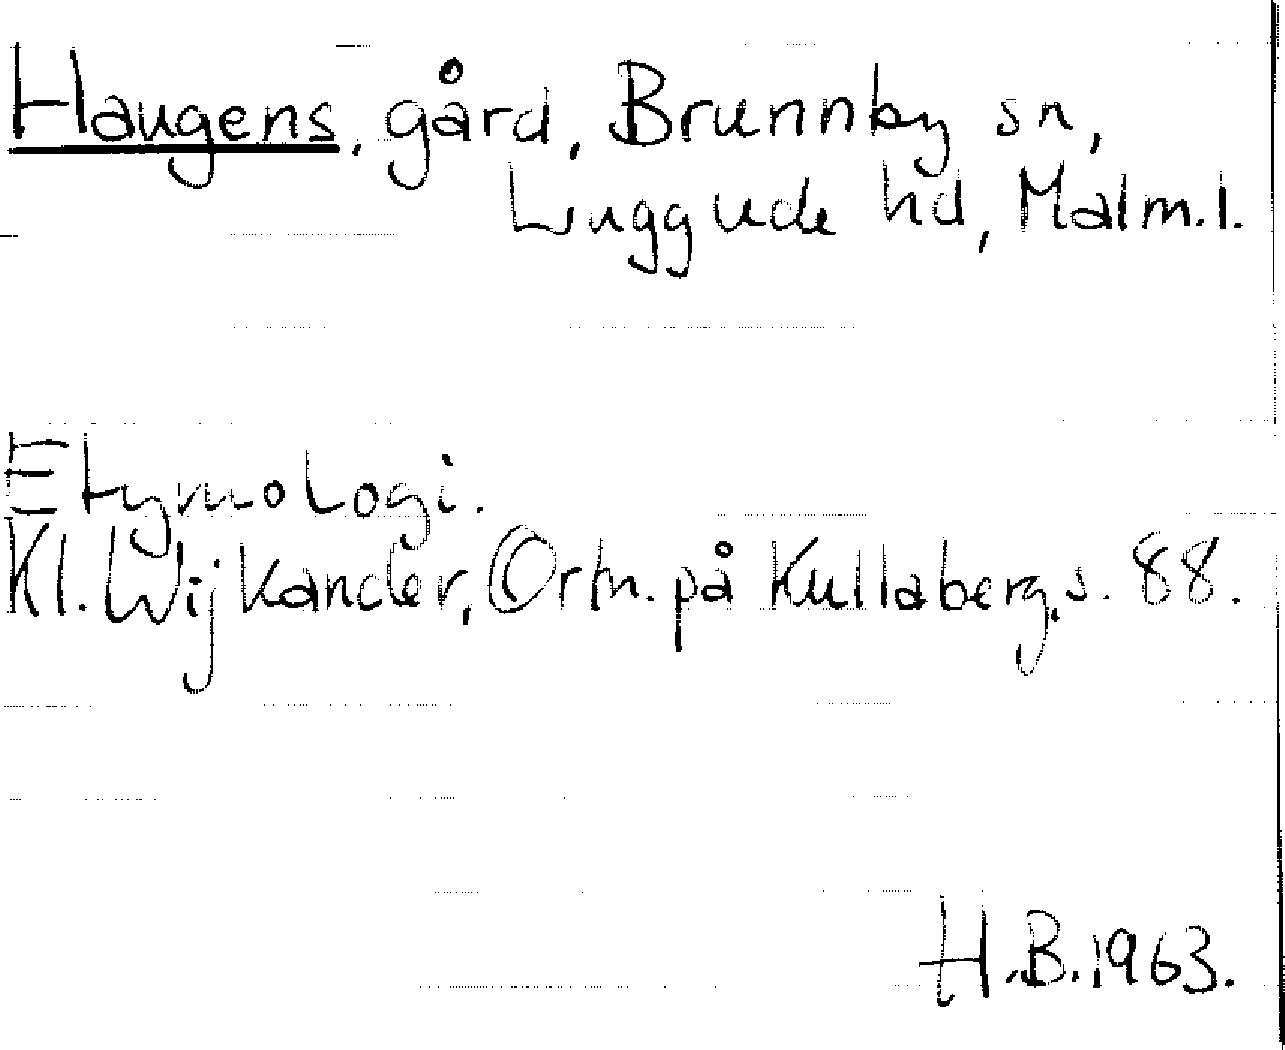 Haugens, gård, Brunnby sn,
Luggude hd, Malm.l.
Etymologi.
Kl. Wijkander, Ortn. på Kullaberg, s. 88.
H.B. 1963.